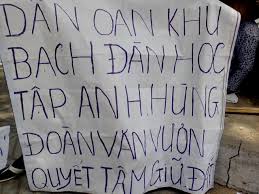 DÂN OAN KHU
BẠCH ĐẰN HỌC
TẬP ANH HÙNG
ĐOÀN VĂN VƯƠN
QUYẾT TÂM GIỮ ĐẤ